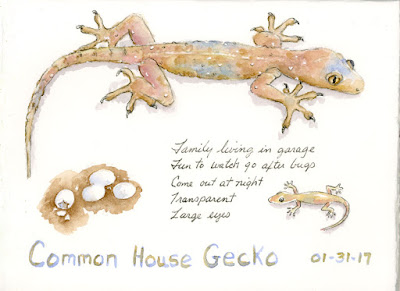 Family living in garage
Fun to watch go after bugs
Come out at night
Transparent
Large eyes
Common House Gecko 01-31-17